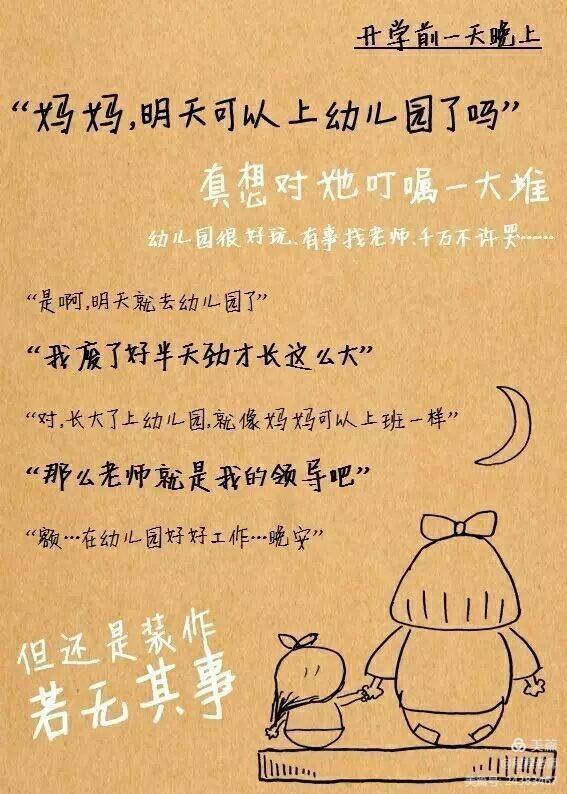 开学前一天晚上
“妈妈,明天可以上幼儿园了吗”
真想对她叮嘱一大堆
幼儿园很好玩、有事找老师、千万不许哭……
“是啊,明天就去幼儿园了”
“我废了好半天劲才长这么大”
“对,长大了上幼儿园,就像妈妈可以上班一样”
“那么老师就是我的领导吧”
“额…在幼儿园好好工作…晚安”
但还是装作
若无其事
美篇
美篇号:24383467